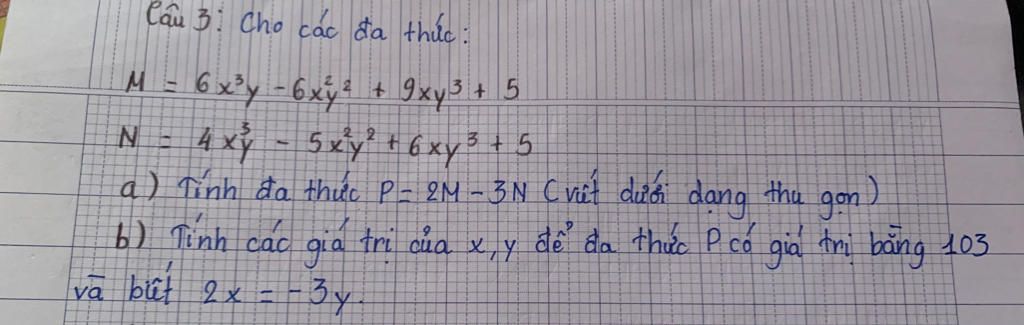 Câu 3: Cho các đa thức:
M = 6x³y - 6x²y² + 9xy³ + 5
N = 4x³y - 5x²y² + 6xy³ + 5
a) Tính đa thức P = 2M - 3N (viết dưới dạng thu gọn)
b) Tính các giá trị của x, y để đa thức P có giá trị bằng 103
và biết 2x = -3y.